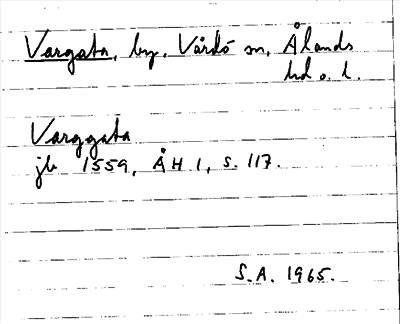 Vargata, by, Vårdö sn, Ålands
hd o. l.
Varggata
jb 1559, ÅH 1, s. 117.
S.A. 1965.